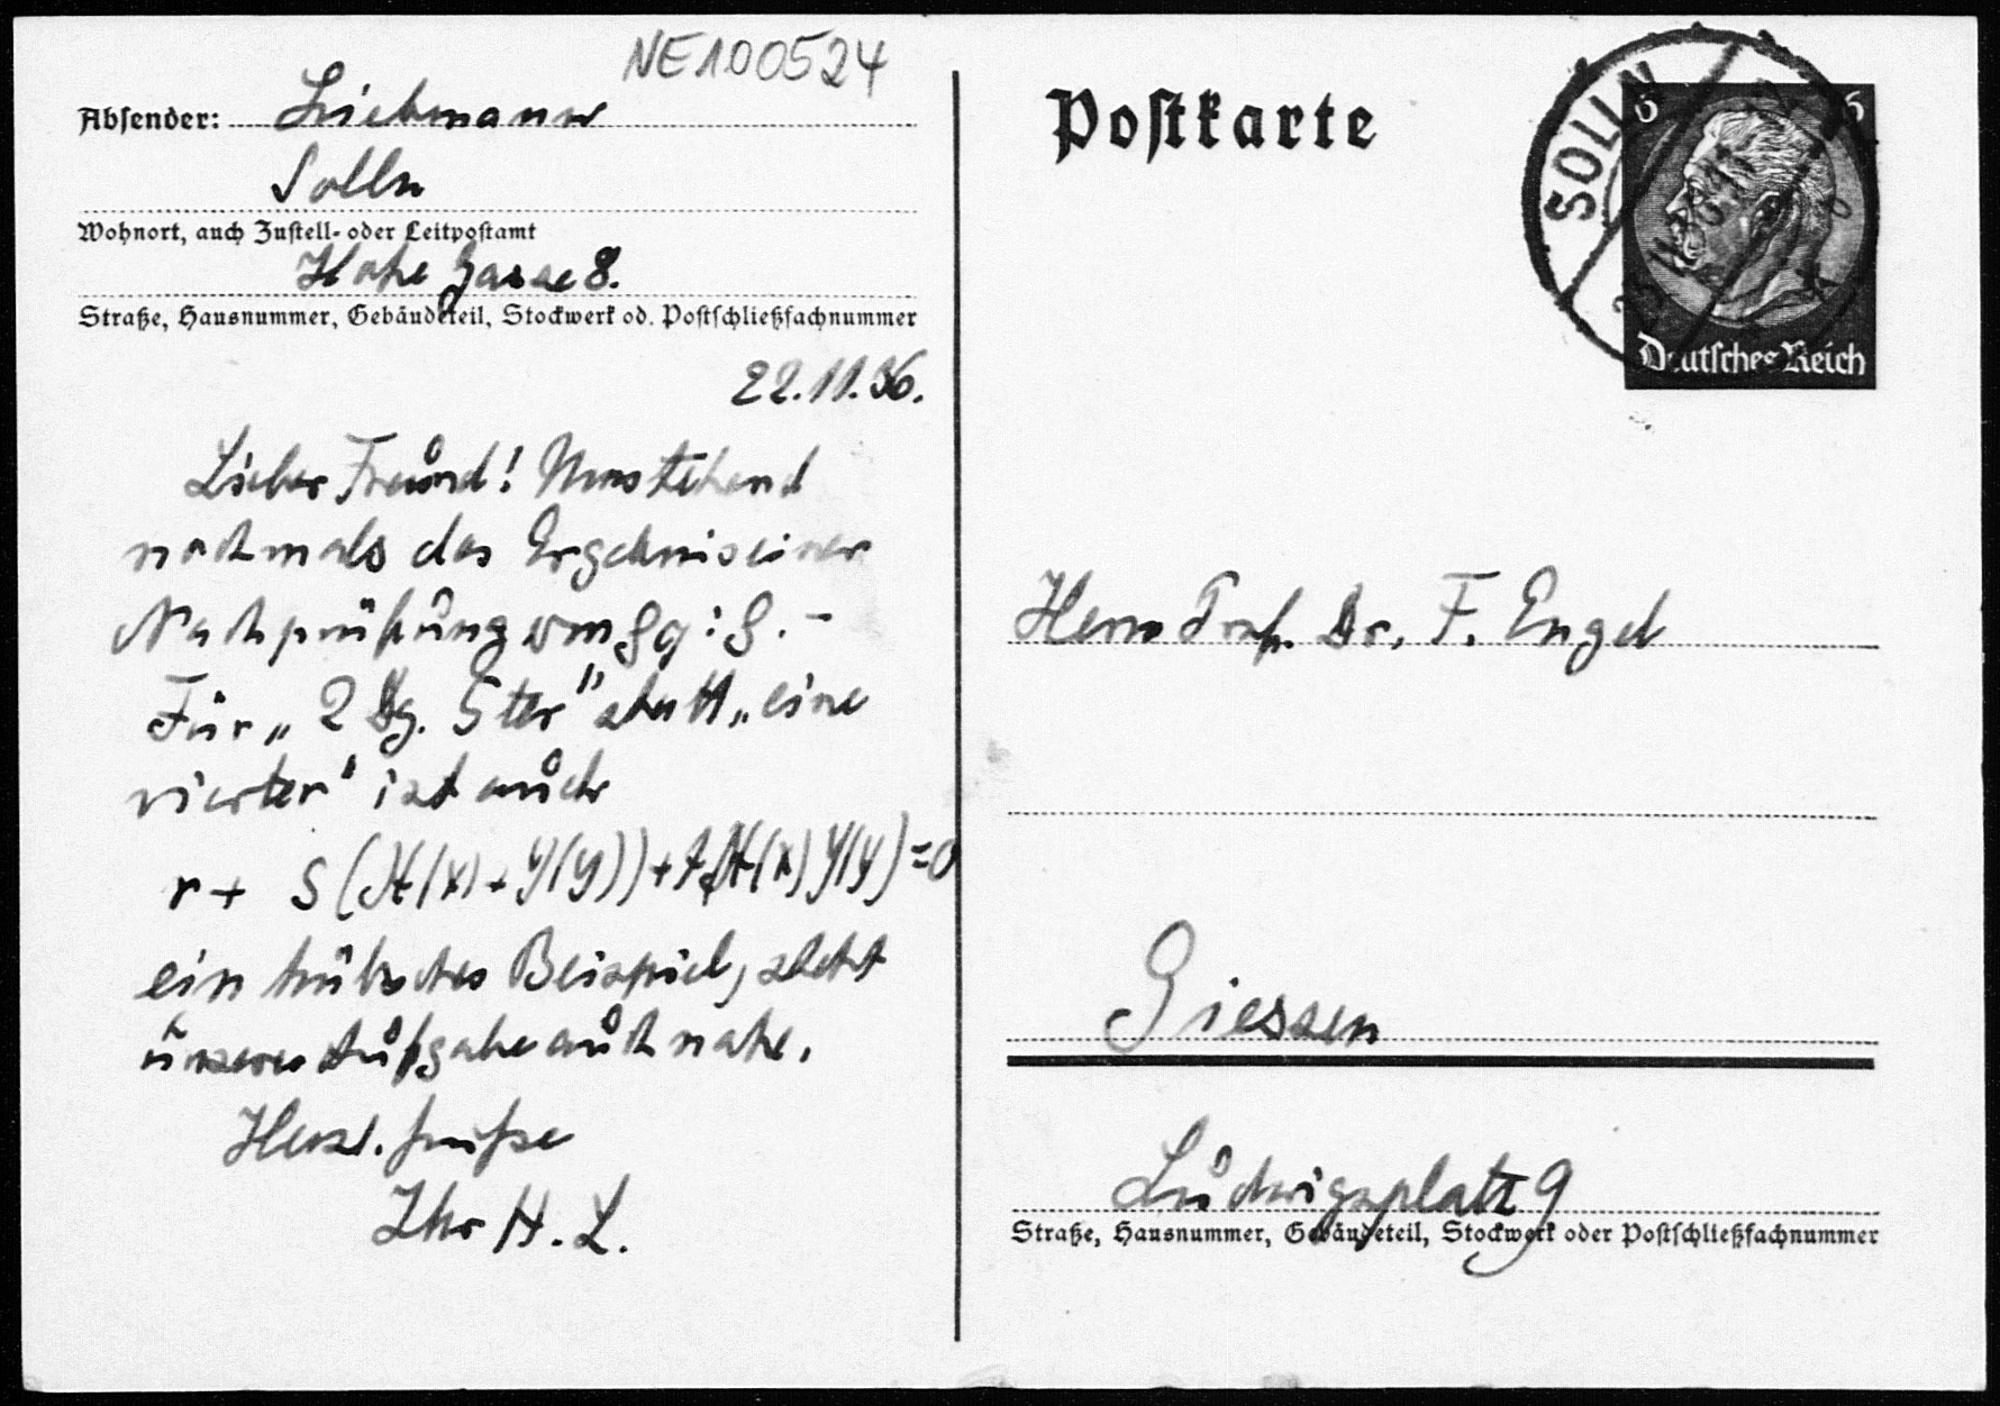 NE100524
Absender: Liebmann
Solln
Wohnort, auch Zustell- oder Leitpostamt
Hohe Gasse 8.
Straße, Hausnummer, Gebäudeteil, Stockwerk od. Postschließfachnummer
22.11.36.
Lieber Freund! Umstehend
nochmals das Ergebnis einer
Nachprüfung
Für „2 Dg. 5ter" statt „eine
vierter" ist auch
r + s(X(x) + Y(y)) + t X(x) Y(y) = 0
ein hübsches Beispiel, steht
unserer Aufgabe auch nahe.
Herzl. Grüsse
Ihr H. L.
Postkarte
SOLLN
6 6
Deutsches Reich
Herrn Prof. Dr. F. Engel
Giessen
Ludwigsplatz 9
Straße, Hausnummer, Gebäudeteil, Stockwerk oder Postschließfachnummer